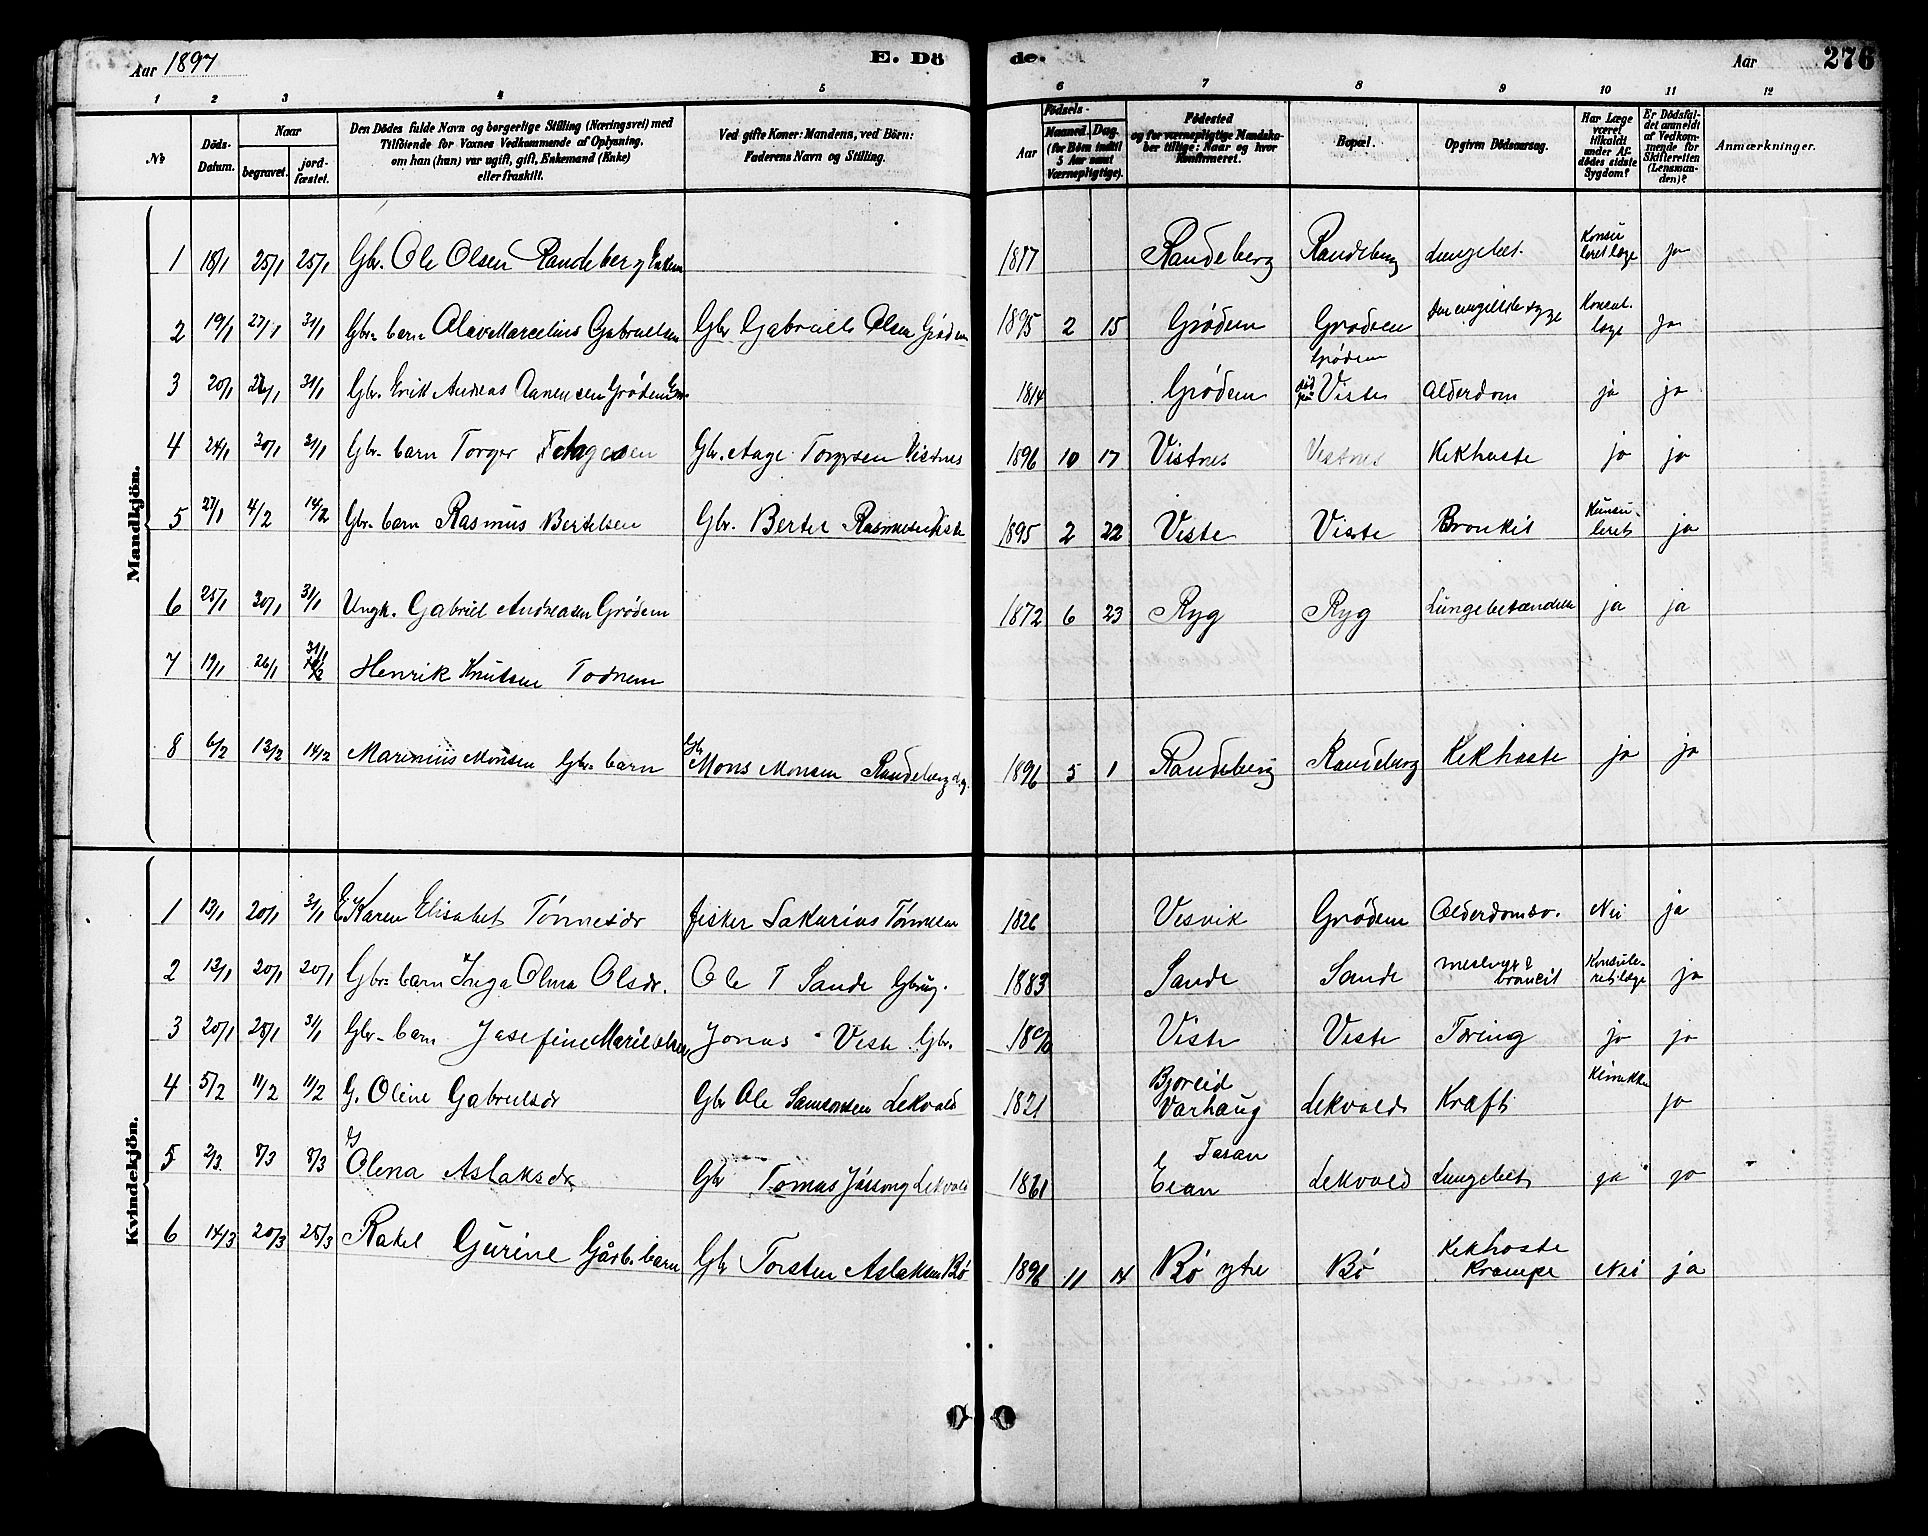 Aar 1897
E. Dö
de.
Aar
276
1 2 3 4 5 6 7 8 9 10 11 12
No
Döds-
Datum.
Naar
begravet.
jord-
fæstet.
Den Dödes fulde Navn og borgerlige Stilling (Næringsvei) med
Tilföiende for Voxnes Vedkommende af Oplysning,
om han (hun) var ugift, gift, Enkemand (Enke)
eller fraskilt.
Ved gifte Koner: Mandens, ved Börn:
Faderens Navn og Stilling.
Födsels-
Aar
Maaned. Dag.
(for Börn indtil
5 Aar samt
Værnepligtige).
Födested
og for værnepligtige Mandska-
ber tillige: Naar og hvor
Konfirmeret.
Bopæl.
Opgiven Dödsaarsag.
Har Læge
været
tilkaldt
under Af-
dödes sidste
Sygdom?
Er Dödsfal-
det anmeldt
af Vedkom-
mende for
Skifteretten
(Lensman-
den)?
Anmærkninger.
Mandkjön.
1 18/1 25/1 25/1 Gbr. Ole Olsen Randeberg Enkem 1817 Randeberg Randeberg Lungebet. Konsuleret læge ja
2 19/1 27/1 31/1 Gbr. barn Olav Marcelius Gabrielsen Gbr Gabriel Olsen Grødem 1895 2 15 Grødem Grødem Den engelske syge Konsul. læge ja
3 20/1 31/1 Gbr. Erik Andreas Grødem 1814 Grødem Grødem Viste Alderdom ja ja
4 24/1 30/1 31/1 Gbr. barn Torger Aagesen Gbr. Aage Torgersen Vistnes 1896 10 17 Vistnes Vistnes Kikhoste ja ja
5 27/1 4/2 14/2 Gbr. barn Rasmus Bertelsen Gbr. Bertel Rasmussen Viste 1895 2 22 Viste Viste Bronkit Kunsuleret ja
6 25/1 30/1 31/1 Ungk. Gabriel Andreasen Grødem 1872 6 23 Ryg Ryg Lungebetændelse ja ja
7 19/1 26/1 31/1 Henrik Knutsen Todnem
8 6/2 13/2 14/2 Marinius Monsen Gbr. barn Gbr Mons Monsen Randeberg 1896 5 1 Randeberg Randeberg Kikhoste ja ja
Kvindekjön.
1 13/1 20/1 31/1 E Karen Elisabet Tønnesdr fisker Sakarias Tønnesen 1826 Vesvik Grødem Alderdomssv. Nei ja
2 12/1 20/1 20/1 Gbr. barn Inga Olina Olsdr. Ole T Sande Gbrug. 1883 Sande Sande Konsuleret læge ja
3 20/1 28/1 31/1 Gbr. barn Josefine Marie Jonas Viste Gbr. Viste Viste Tæring ja ja
4 5/2 11/2 11/2 G. Oline Gabrielsdr Gbr Ole Samsonsen Lekvold 1821 Varhaug Lekvold Kræft ja
5 2/3 8/3 8/3 G Olena Aslaksdr Gbr Tomas Lekvold 1861 Lekvold Lungebet ja ja
6 14/3 20/3 28/3 Rakel Gurine Gårb. barn Gbr Torsten Aslaksen Bø 1896 11 14 Bø ytre Bø Kikhoste Krampe Nei ja